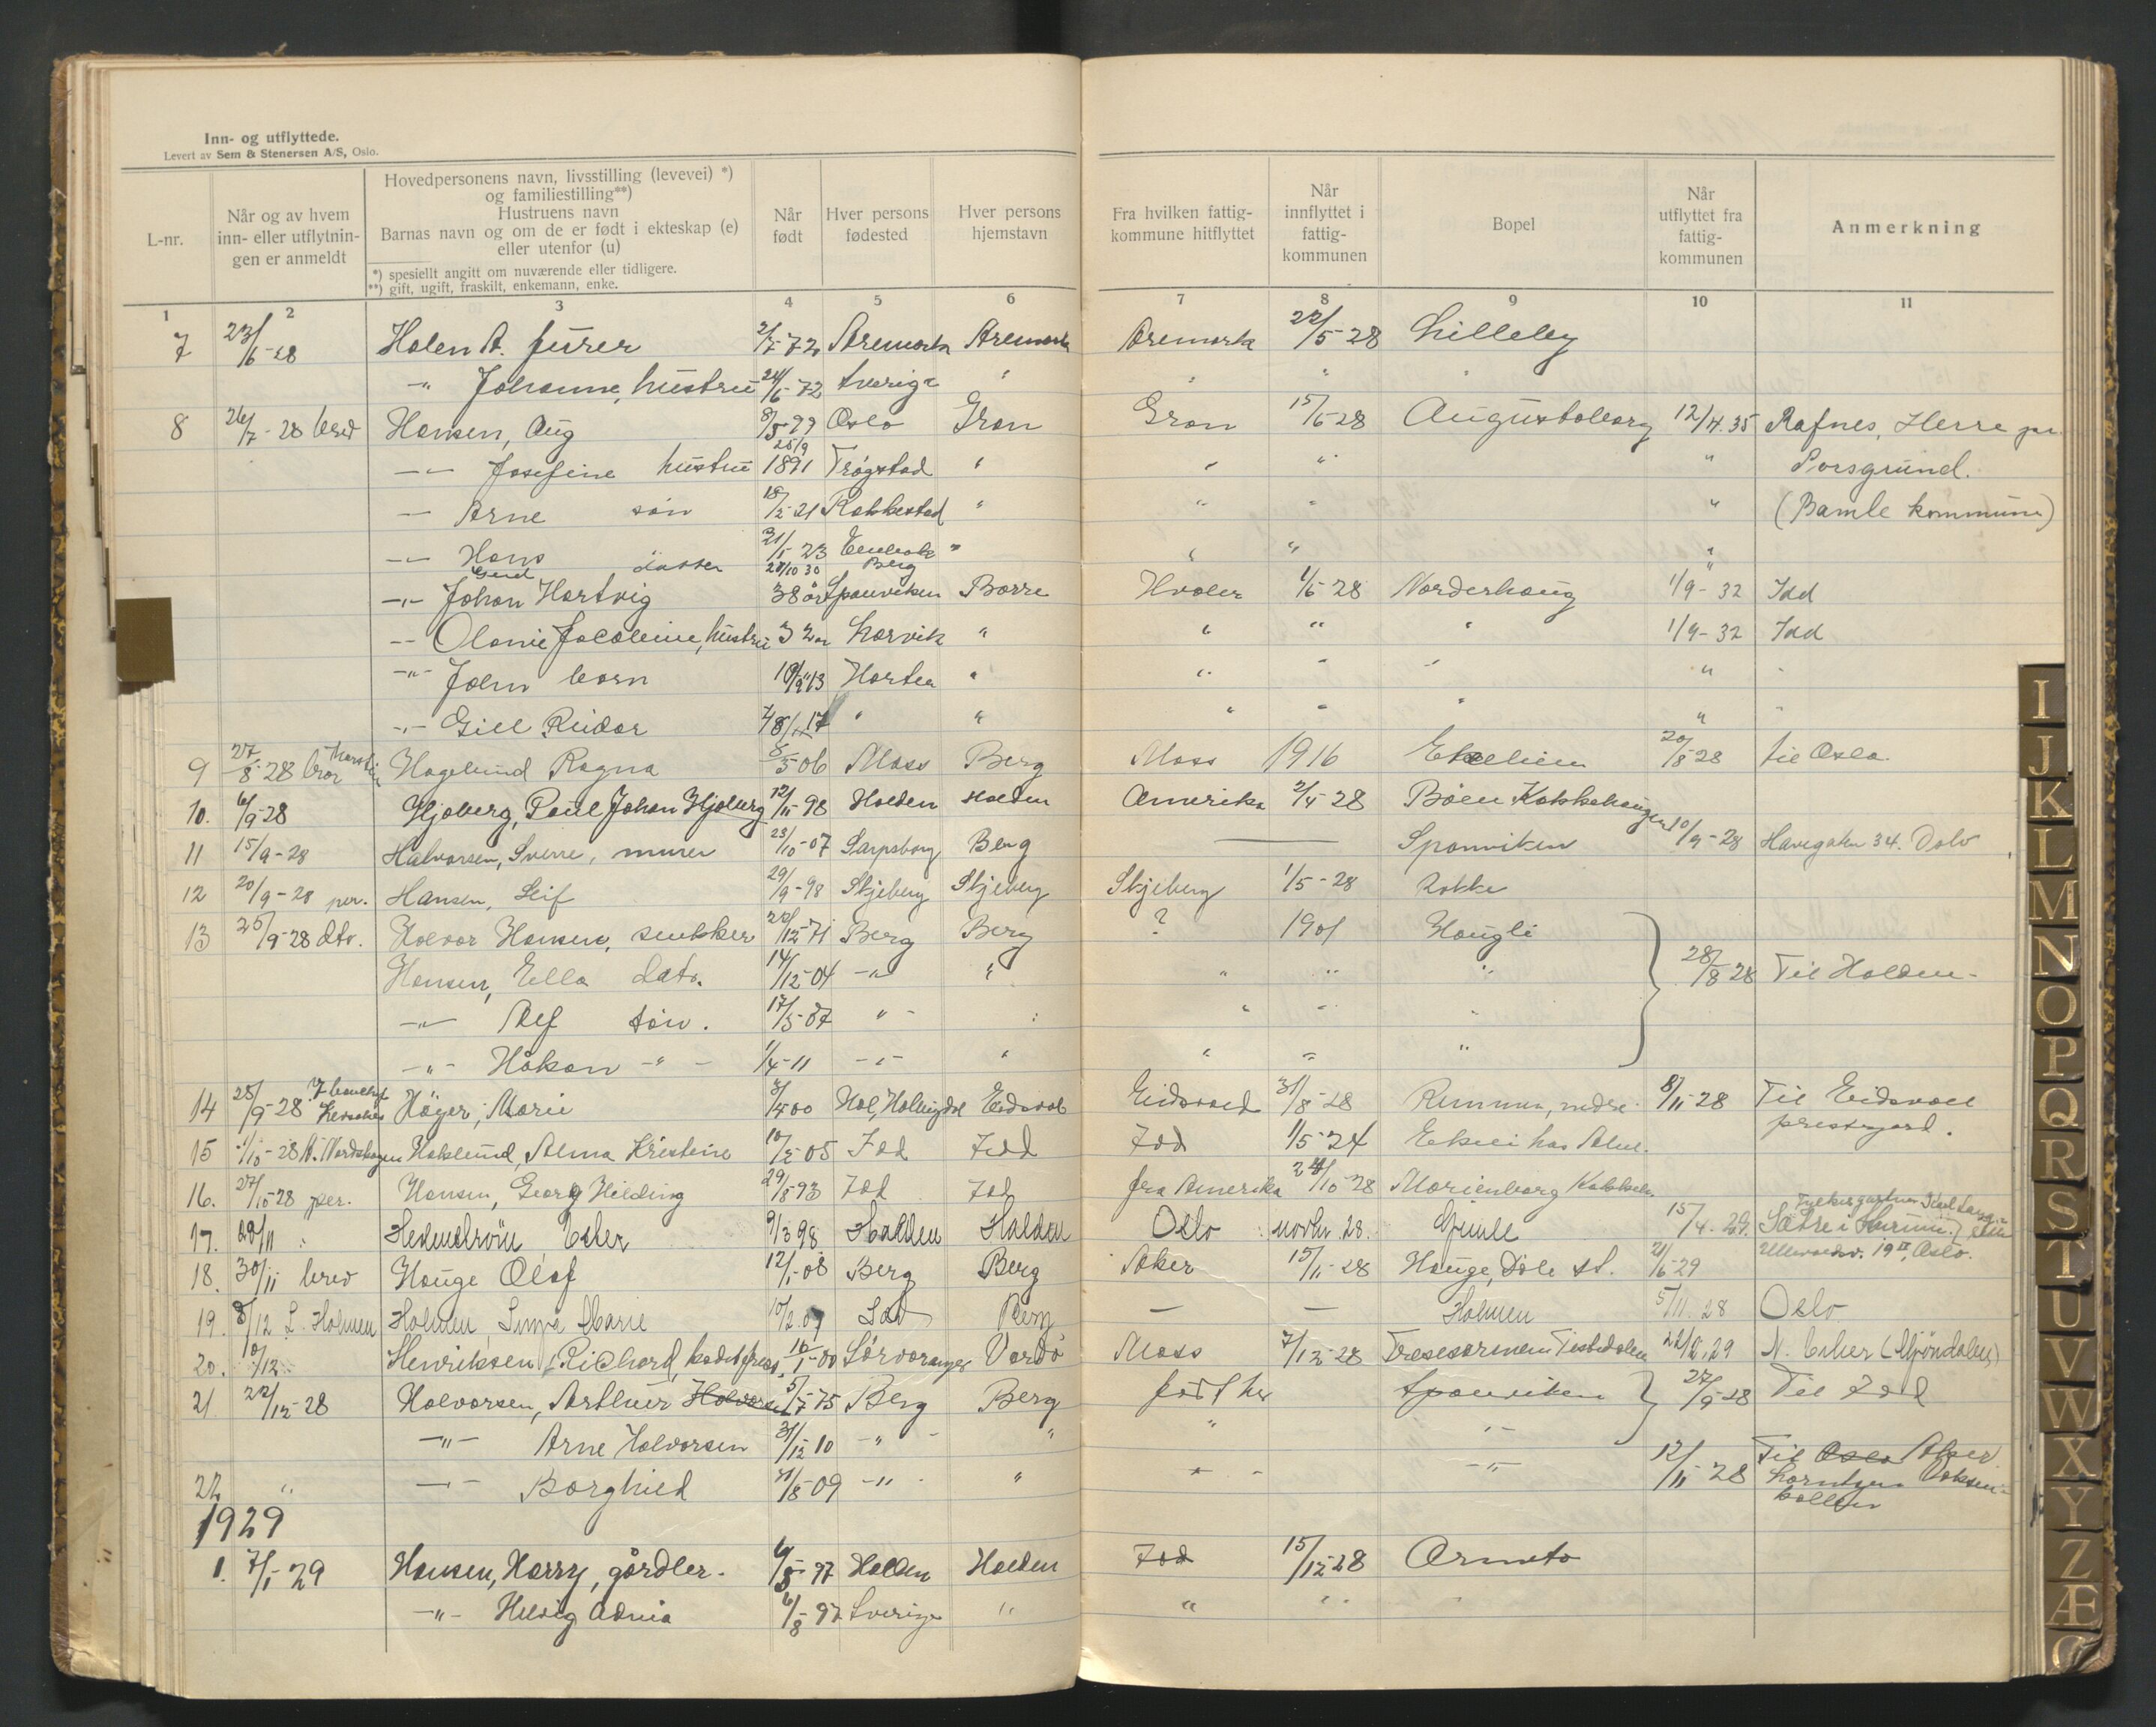 Inn- og utflyttede.
Levert av Sem & Stenersen A/S, Oslo.
L-nr.
Når og av hvem
inn- eller utflytnin-
gen er anmeldt
Hovedpersonens navn, livsstilling (levevei) *)
og familiestilling**)
Hustruens navn
Barnas navn og om de er født i ekteskap (e)
eller utenfor (u)
*) spesiellt angitt om nuværende eller tidligere.
**) gift, ugift, fraskilt, enkemann, enke.
Når
født
Hver persons
fødested
Hver persons
hjemstavn
Fra hvilken fattig-
kommune hitflyttet
Når
innflyttet i
fattig-
kommunen
Bopel
Når
utflyttet fra
fattig-
kommunen
Anmerkning
1 2 3 4 5 6 7 8 9 10 11
7 23/6-28 Holen A. 72 Aremark Aremark Aremark 22/5-28 Lilleby
-"- Johanne, hustru 24/6-72 Sverige " " " "
8 26/7-28 brev Hansen, Aug Oslo Gran Gran 15/6-28 Augustaborg 12/4.35 Rafnes, Herre pr.
-"- Josefine hustru 25/9 1891 Trøgstad " " " " Porsgrund.
- Arne søn 21 Rakkestad " " " " (Bamle kommune)
-"- Hans 23 " " " "
Gerd datter 28/10 30 Berg "
-"- Johan Hartvig 38 år Sponviken Borre Hvaler 1/6-28 Norderhaug 1/9-32 Idd
-"- Olanie Jacobine, hustru 32 år Larvik " " " " 1/9-32 Idd
-"- John barn Horten " " " " " "
-"- Gill Reidar 17 " " " " " " "
9 27/8-28 bror Hagelund Ragna 06 Moss Berg Moss 1916 Ekelien 20/8 28 til Oslo
10. 6/9-28 Hjoberg, Paul Johan Hjoberg 12/11-98 Halden Halden Amerika 2/4-28 Bøen Kokkehaugen
11 15/9-28 Halvorsen, Sverre, murer 23/10-07 Sarpsborg Berg — Sponviken 10/9-28 Havegaten 34. Oslo
12 20/9-28 per. Hansen, Leif 29/9-98 Skjeberg Skjeberg Skjeberg 1/5-28 Rokke
13 25/9-28 dto. Halvor Hansen, snekker 22/12-71 Berg Berg ? 1901 Haugli
Hansen, Ella datr. 14/12-04 -"- " " " " 28/8 28 Til Halden-
-"- Alf søn. 17/5-07 " " " " "
-"- Håkon -"- 1/4-11 -"- " " " "
14 25/9-28 Høyer, Marie 00 Hol, Hallingdal Eidsvold Eidsvold 31/8-28 Remmen, nedre 8/11 28 Til Eidsvoll
prestegård.
15 1/10-28 A. Nordskogen Haklund, Alma Kristine 10/2-05 Idd Idd Idd 1/5-24 Ekeli hos
16. 27/10-28 per. Hansen, Georg Hilding 29/8-93 Idd Idd fra Amerika 24/10-28 Marienborg
17. 29/11 " Hedenström Ester 9/3 98 Halden Halden Oslo novbr. 28. Gimle 15/4-29. Sætre i Hurum
Ullevoldsv. 19 II, Oslo.
18. 30/11 brev Hauge Olaf 12/1-08 Berg Berg Aker 15/11-28 Hauge, Dale st. 21/6-29
19. 8/12 L. Holmen Holmen Marie 10/2.09 Idd Berg — — Holmen 5/11 28 Oslo
20. 10/12 Henriksen, Richard, 10/1-00 Sørvaranger Vardø Moss 7/12-28 Tistedalen 29 N. Eiker (Mjöndalen)
21 22/12-28 Halvorsen, Arthur Halvorsen 5/7-75 Berg Berg født her Sponviken 27/9-28 Til Idd
-"- Arne Halvorsen 31/12-10 -"- " " -"-
22 " -"- Borghild 21/8-09 -"- " " -"- 12/11-28 Til Oslo Aker
Lorntzen Voksen-
kollen
1929
1. 7/1-29 Hansen, Harry, gårdbr. 97 Halden Halden Idd 15/12-28
-"- Hedvig 6/8-97 Sverige " " " "
I
J
K
L
M
N
O
P
Q
R
S
T
U
V
W
X
Y
Z
Æ